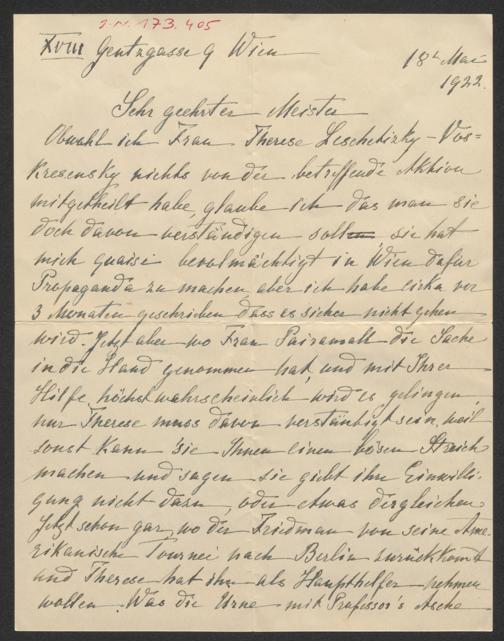 I.N. 173.405
XVIII Gentzgasse 9 Wien
18t Mai
1922.
Sehr geehrter Meister
Obwohl ich Frau Therese Leschetizky-Vos=
Kresensky nichts von der betreffende Aktion
mitgetheilt habe, glaube ich das man sie
doch davon verständigen sollten sie hat
mich quaisi bevolmächtigt in Wien dafür
Propaganda zu machen, aber ich habe cirka vor
3 Monaten geschrieben dass es sicher nicht gehen
wird. Jetzt aber wo Frau Pairamall die Sache
in die Hand genommen hat, und mit Ihrer
Hilfe, höchstwahrscheinlich wird es gelingen,
nur Therese muss davon verständigt sein, weil
sonst kann sie Ihnen einen bösen Streich
machen und sagen sie giebt ihr Einwilli-
gung nicht dazu, oder etwas dergleichen.
Jetzt schon gar, wo der Friedman von seine Ame-
rikanische Tournee nach Berlin zurückkomt
und Therese hat ihn als Haupthelfer nehmen
wollen. Was die Urne mit Professor's Asche